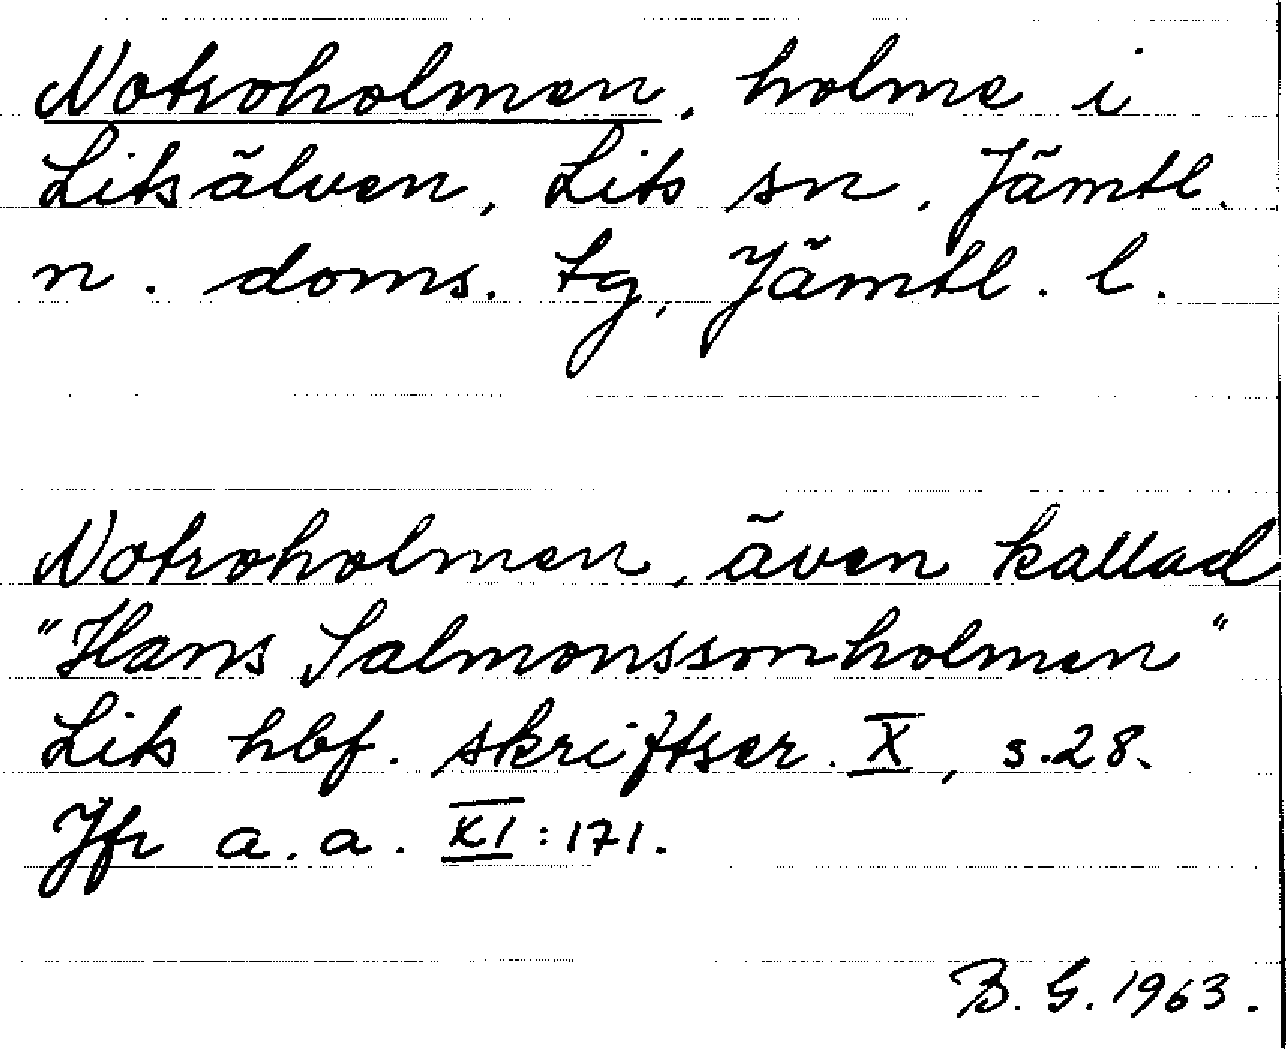 Notroholmen, holme i
Litsälven, Lits sn, Jämtl.
n. doms. tg, Jämtl. l.
Notroholmen, även kallad
"Hans Salmonssonholmen"
Lits hbf. skriftser. X, s. 28.
Jfr a.a. XI:171.
B. G. 1963.